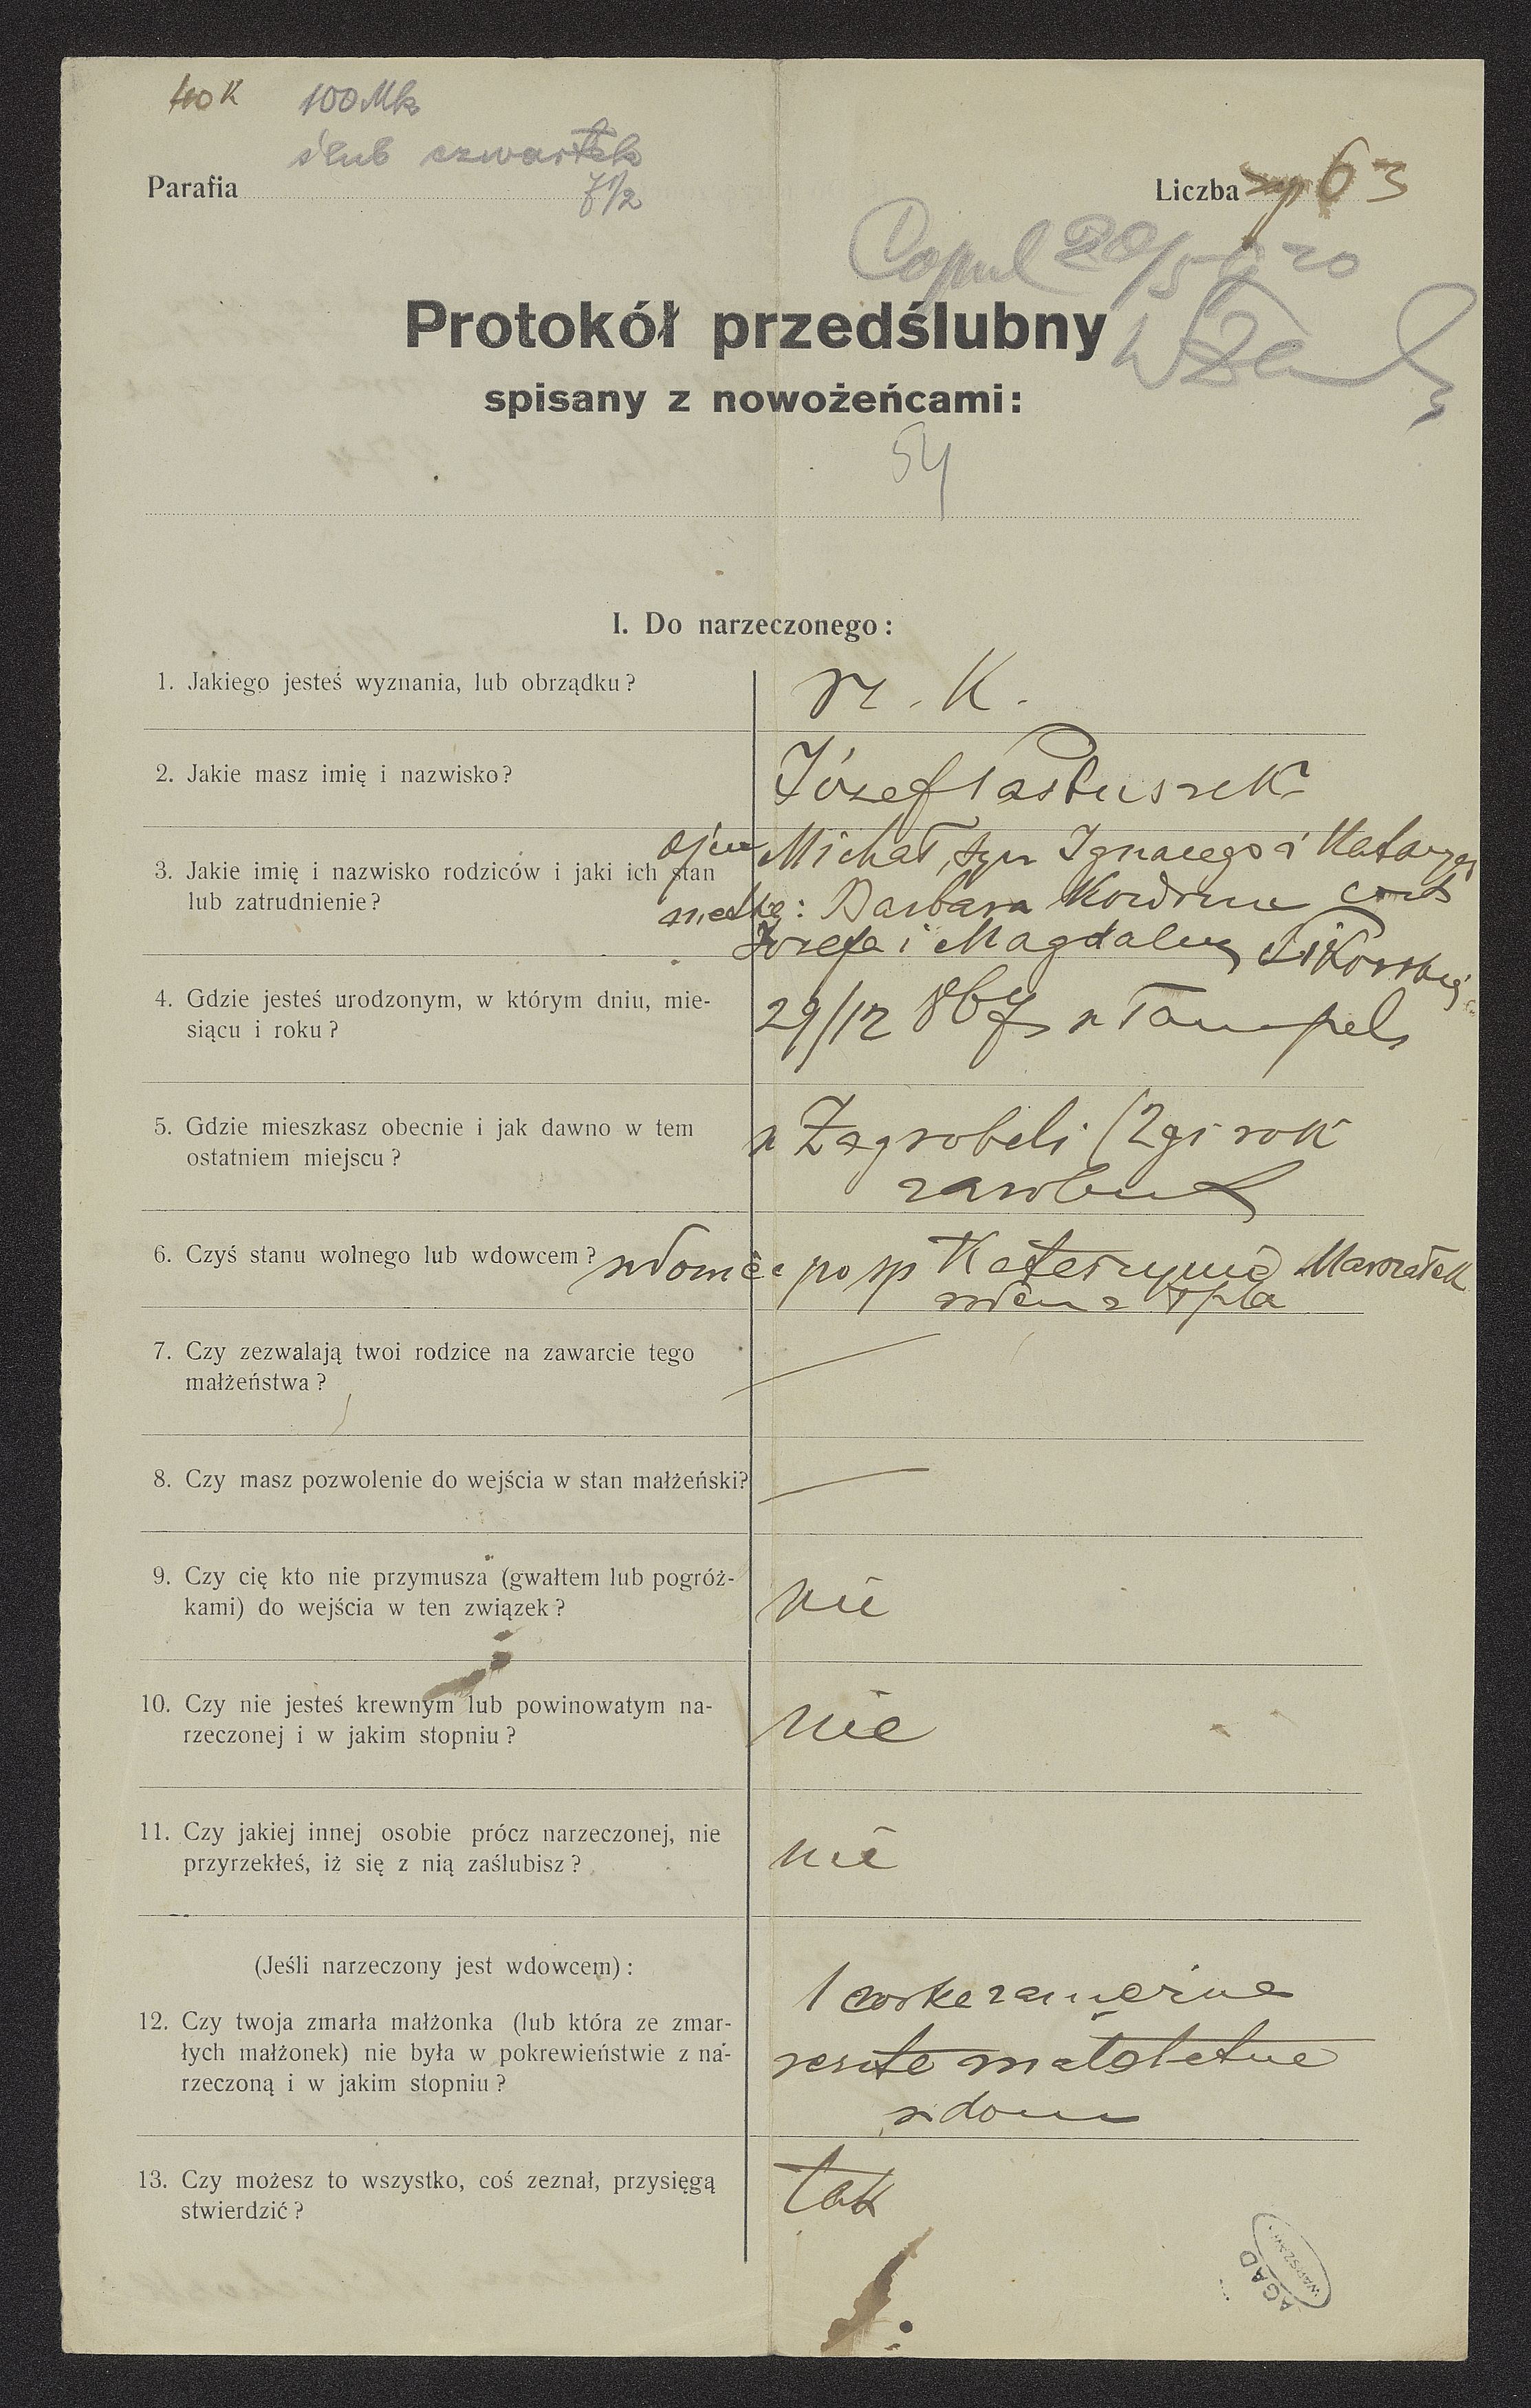 40 K 100 Mk
ślub czwartek
Parafia 7 1/2
Liczba 63
Copul 20/5 20
Protokół przedślubny
spisany z nowożeńcami:
54
I. Do narzeczonego:
1. Jakiego jesteś wyznania, lub obrządku?
rz. K.
2. Jakie masz imię i nazwisko?
Józef Pastuszek
3. Jakie imię i nazwisko rodziców i jaki ich stan
lub zatrudnienie?
ojciec Michał, syn Ignacego i Katarzyny
matka: Barbara córka
Józefa i Magdaleny Sikorskiej
4. Gdzie jesteś urodzonym, w którym dniu, mie-
siącu i roku?
29/12 867 w Tarnopolu
5. Gdzie mieszkasz obecnie i jak dawno w tem
ostatniem miejscu?
w Zagrobeli (2gi rok
zarobnik
6. Czyś stanu wolnego lub wdowcem?
wdowiec po śp Katarzynie Marszałek
7. Czy zezwalają twoi rodzice na zawarcie tego
małżeństwa?
8. Czy masz pozwolenie do wejścia w stan małżeński?
9. Czy cię kto nie przymusza (gwałtem lub pogróż-
kami) do wejścia w ten związek?
nie
10. Czy nie jesteś krewnym lub powinowatym na-
rzeczonej i w jakim stopniu?
nie
11. Czy jakiej innej osobie prócz narzeczonej, nie
przyrzekłeś, iż się z nią zaślubisz?
nie
(Jeśli narzeczony jest wdowcem):
12. Czy twoja zmarła małżonka (lub która ze zmar-
łych małżonek) nie była w pokrewieństwie z na-
rzeczoną i w jakim stopniu?
1 córka zamężna
reszta małoletnie
w domu
13. Czy możesz to wszystko, coś zeznał, przysięgą
stwierdzić?
tak
AGAD
WARSZAWA